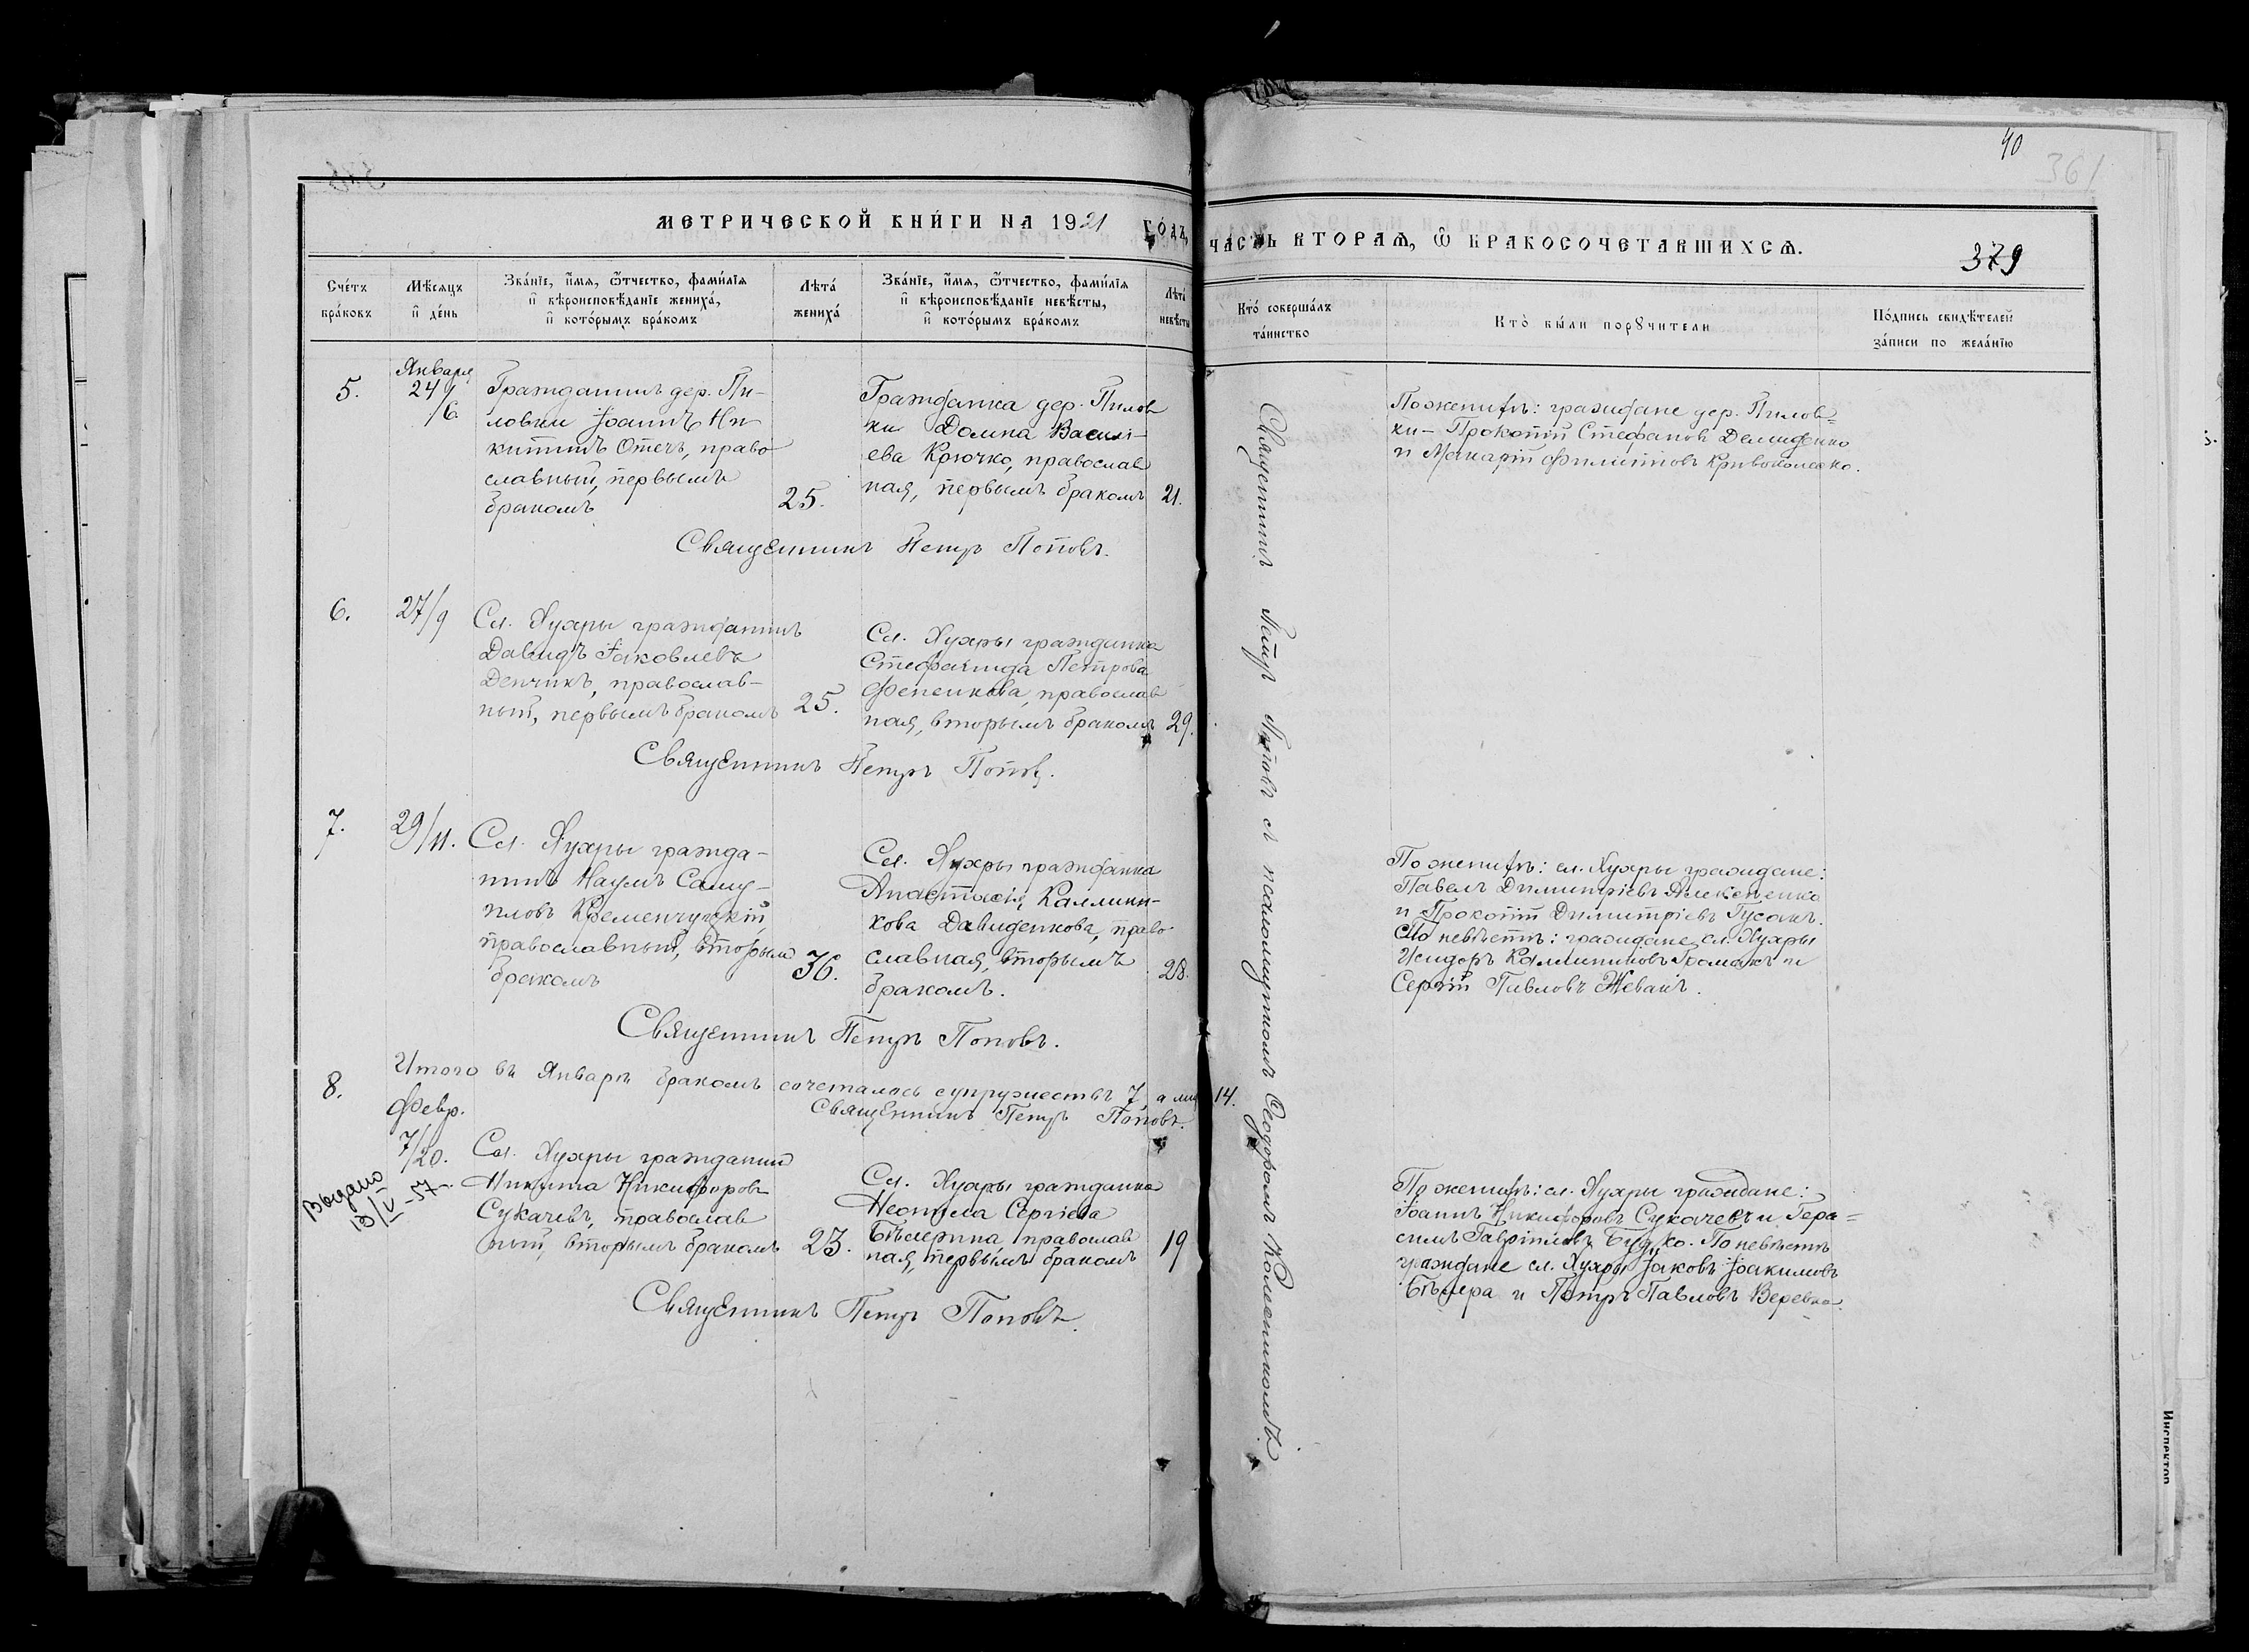 40
361
МЕТРИЧЕСКОЙ КНИ́ГИ НА 1921 ГО́ДЪ,
ЧАСТЬ ВТОРАѦ, Ѡ БРАКОСОЧЕТАВШИХСѦ.
379
Сче́тъ бра́ковъ
Мѣ́сяцъ и҆ де́нь
Зва́нїе, и҆́мя, ѻ҆́тчество, фами́лїя
и҆ вѣроисповѣ́данїе жениха́,
и҆ кото́рымъ бра́комъ
Лѣта́ жениха́
Зва́нїе, и҆́мя, ѻ҆́тчество, фами́лїя
и҆ вѣроисповѣ́данїе невѣ́сты,
и҆ кото́рымъ бра́комъ
Лѣта́ невѣсты
Кто́ соверша́лъ
та́инство
Кто̀ бы́ли порꙋчи́тели
По́дпись свидѣ́телей
за́писи по жела́нїю
5.
Января
24/6
Гражданинъ дер. Пи-
ловки Іоаннъ Ни
китинъ Отечъ, право
славный, первымъ
бракомъ
25.
Гражданка дер. Пилов
ки Домна Василі-
ева Крючко, православ
ная, первымъ бракомъ
21.
По женихѣ: граждане дер. Пилов=
ки - Прокопій Стефановъ Демиденко
и Макарій Филипповъ
Священникъ Петръ Поповъ.
6.
27/9
Сл. Хухры гражданинъ
Давидъ Іаковлевъ
Денчикъ, православ-
ный, первымъ бракомъ
25.
Сл. Хухры гражданка
Стефанида Петрова
Фененкова, православ
ная, вторымъ бракомъ
29.
Священникъ Петръ Поповъ.
7.
29/11.
Сл. Хухры гражда-
нинъ Наумъ Саму-
иловъ Кременчуцкій,
православный, вторым
бракомъ
36.
Сл. Хухры гражданка
Анастасія Каллини-
кова Давиденкова, право-
славная, вторымъ
бракомъ.
28.
По женихѣ: сл. Хухры граждане:
Павелъ Димитріевъ Алексеенко
и Прокопій Димитріевъ Гусакъ.
По невѣстѣ: граждане сл. Хухры
Исидоръ Каллиниковъ и
Сергій Павловъ Жеванъ.
Священникъ Петръ Поповъ.
Итого въ Январѣ бракомъ сочеталось супружествъ 7, а лиц 14.
Священникъ Петръ Поповъ.
8.
Февр.
7/20.
Выдано
13/V-57
Сл. Хухры гражданин
Никита Никифоров
Сукачевъ, православ
ный, вторымъ бракомъ
23.
Сл. Хухры гражданка
Неонила Сергіева
Бѣлерина православ
ная, первымъ бракомъ
19
По женихѣ: сл. Хухры граждане:
Іоаннъ Никифоровъ Сукачевъ и Гера=
симъ Гавріиловъ Будко. По невѣстѣ
граждане сл. Хухры Іаковъ Іоакимовъ
и Петръ Павловъ Веревка.
Священникъ Петръ Поповъ.
Священникъ Петръ Поповъ съ псаломщикомъ Ѳеодоромъ Колесниковымъ.
Инспектор